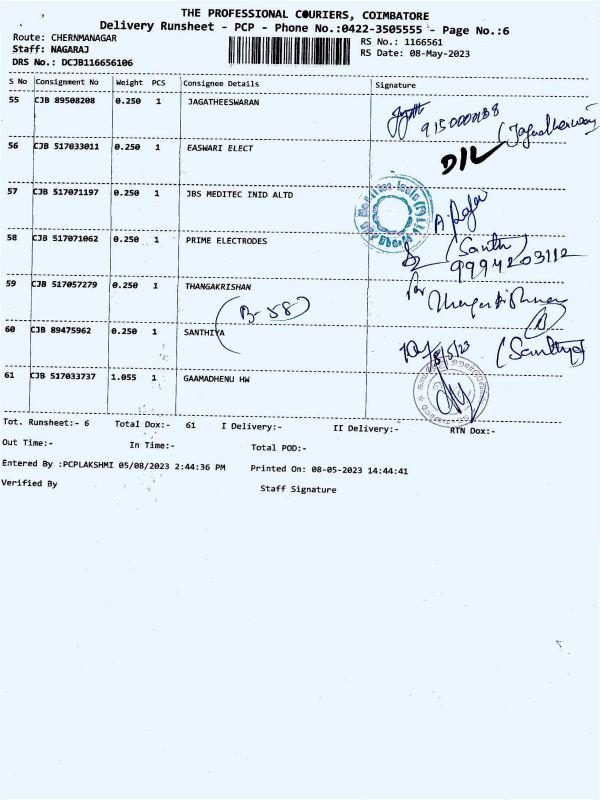 THE PROFESSIONAL COURIERS, COIMBATORE
Delivery Runsheet - PCP - Phone No.:0422-3505555 - Page No.:6
Route: CHERNMANAGAR
Staff: NAGARAJ
DRS No.: DCJB116656106
RS No.: 1166561
RS Date: 08-May-2023
S No Consignment No Weight PCS Consignee Details Signature
55 CJB 89508208 0.250 1 JAGATHEESWARAN
56 CJB 517033011 0.250 1 EASWARI ELECT
D/L
57 CJB 517071197 0.250 1 JBS MEDITEC INID ALTD
58 CJB 517071062 0.250 1 PRIME ELECTRODES
(Santh)
9994203112
59 CJB 517057279 0.250 1 THANGAKRISHAN
(B-58)
60 CJB 89475962 0.250 1 SANTHIYA
(Santhya)
61 CJB 517033737 1.055 1 GAAMADHENU HW
Tot. Runsheet:- 6 Total Dox:- 61 I Delivery:- II Delivery:- RTN Dox:-
Out Time:- In Time:- Total POD:-
Entered By :PCPLAKSHMI 05/08/2023 2:44:36 PM Printed On: 08-05-2023 14:44:41
Verified By Staff Signature